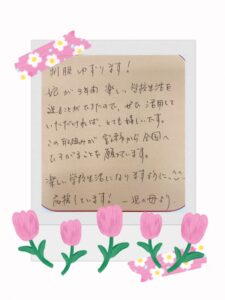 制服ゆずります!
娘が3年間楽しい学校生活を
送ることができたので、ぜひ活用して
いただければ、とても嬉しいです。
この取組みが 全国へ
ひろがることを願っています。
楽しい学校生活になりますように、^^
応援しています! 一児の母より